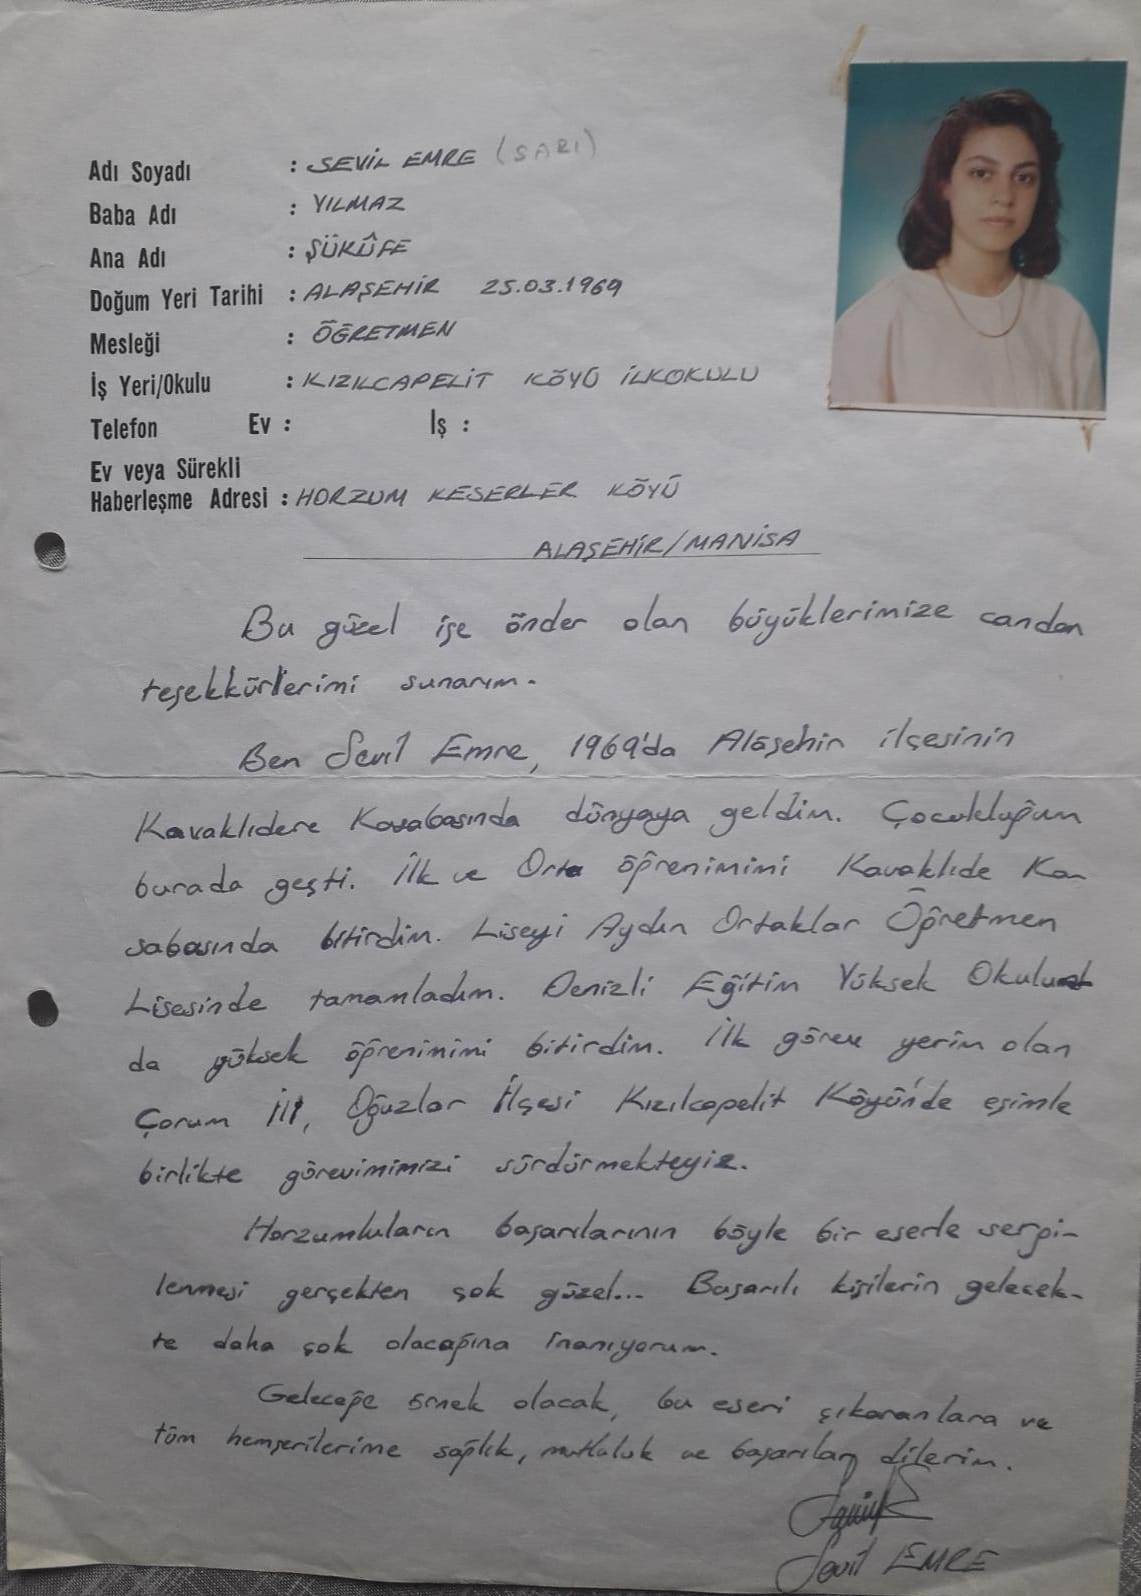 Adı Soyadı : SEVİL EMRE (SARI)
Baba Adı : YILMAZ
Ana Adı : ŞÜKÛFE
Doğum Yeri Tarihi : ALAŞEHİR 25.03.1969
Mesleği : ÖĞRETMEN
İş Yeri/Okulu : KIZILCAPELİT KÖYÜ İLKOKULU
Telefon Ev : İş :
Ev veya Sürekli
Haberleşme Adresi : HORZUM KESERLER KÖYÜ
ALAŞEHİR/MANİSA
Bu güzel işe önder olan büyüklerimize candan
teşekkürlerimi sunarım.
Ben Sevil Emre, 1969'da Alaşehir ilçesinin
Kavaklıdere Kasabasında dünyaya geldim. Çocukluğum
burada geçti. İlk ve Orta öğrenimimi Kavaklıde Ka
sabasında bitirdim. Liseyi Aydın Ortaklar Öğretmen
Lisesinde tamamladım. Denizli Eğitim Yüksek Okulun
da yüksek öğrenimimi bitirdim. İlk görev yerim olan
Çorum İli, Oğuzlar İlçesi Kızılcapelit Köyü'nde eşimle
birlikte görevimimizi sürdürmekteyiz.
Horzumluların başarılarının böyle bir eserle sergi-
lenmesi gerçekten çok güzel... Başarılı kişilerin gelecek-
te daha çok olacağına inanıyorum.
Geleceğe örnek olacak, bu eseri çıkaranlara ve
tüm hemşerilerime sağlık, mutluluk ve başarılar dilerim.
Sevil EMRE